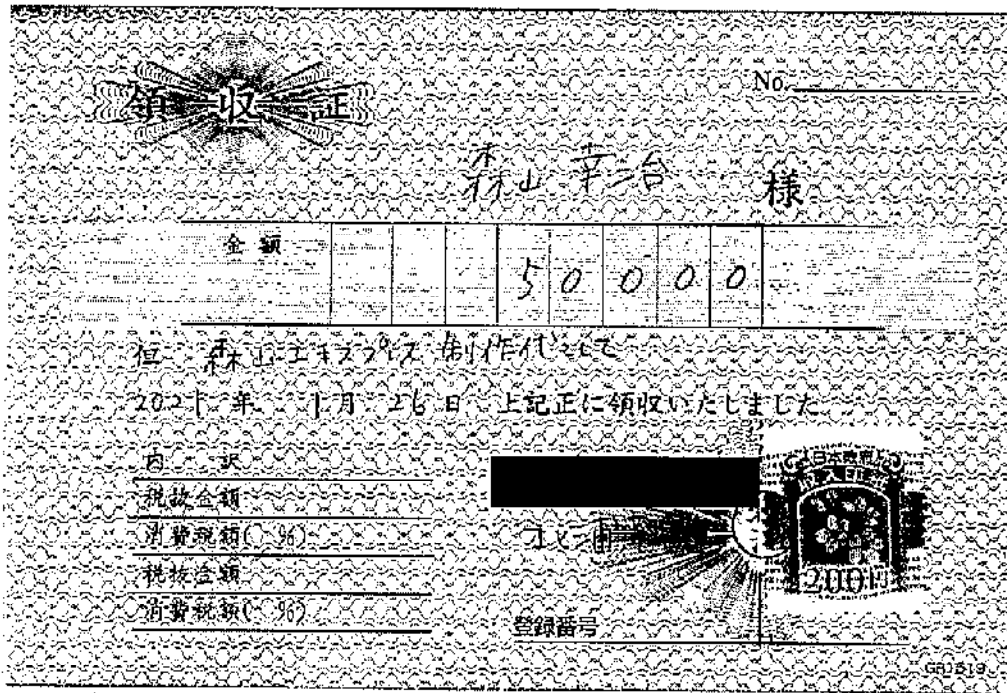 領収証
No.
森山 幸治 様
金額 50000
但 森山エキスプレス 制作代として
2021年 1月 26日 上記正に領収いたしました
内 訳
税抜金額
消費税額( %)
税抜金額
消費税額( %)
日本政府
収入印紙
200円
登録番号
GR1519